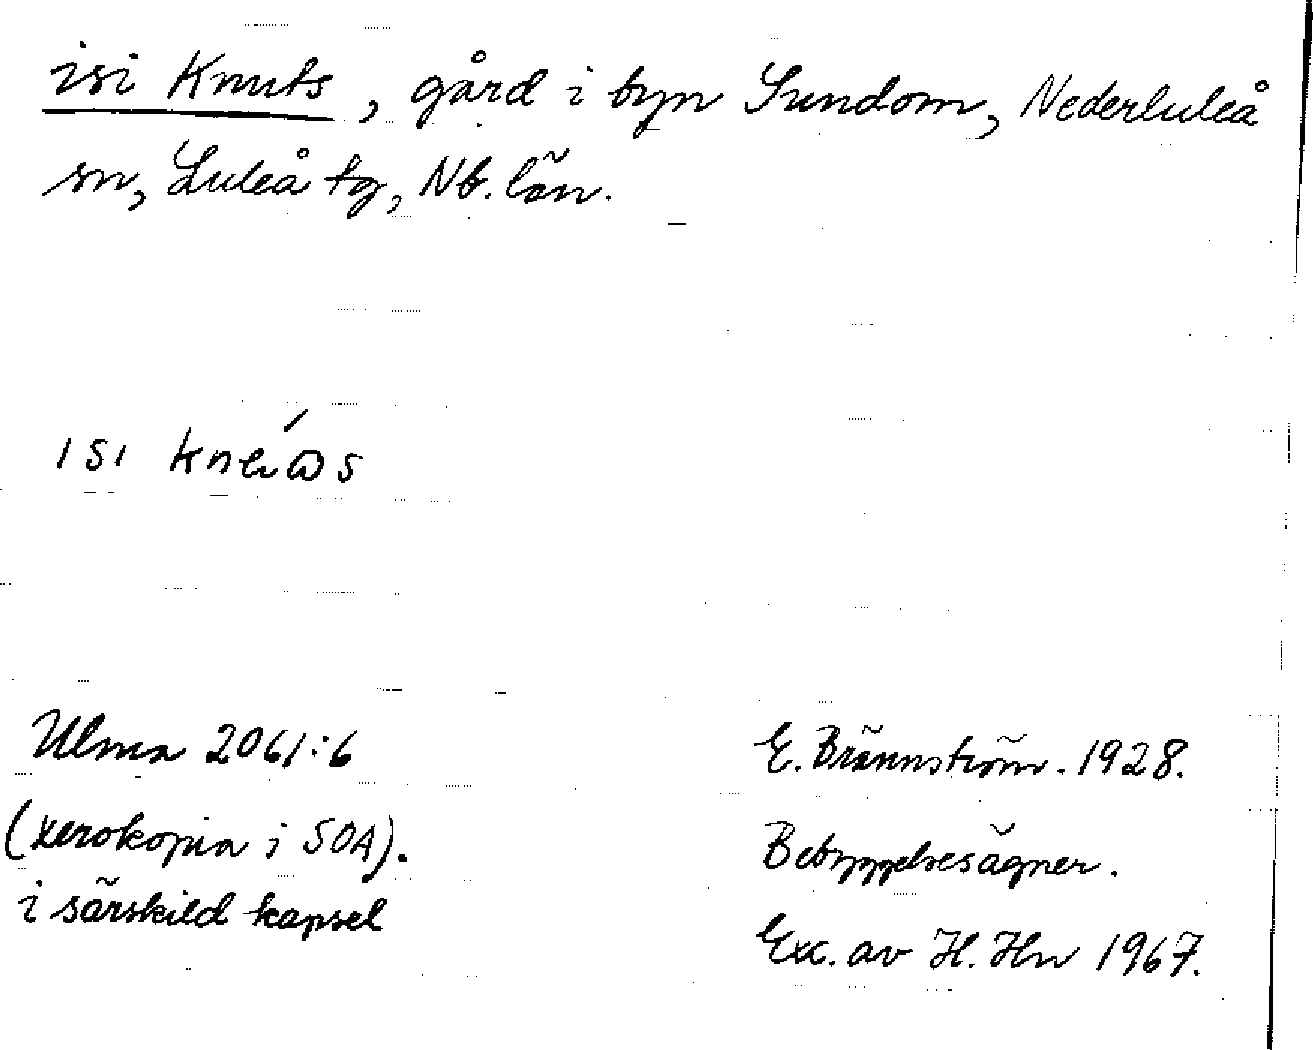 isi Knuts, gård i byn Sundom, Nederluleå
sn, Luleå tg, Nb. län.
ısı
Ulma 2061:6
(xerokopia i SOA).
i särskild kapsel
E. Brännström. 1928.
Bebyggelsesägner.
Exc. av H. Hn 1967.